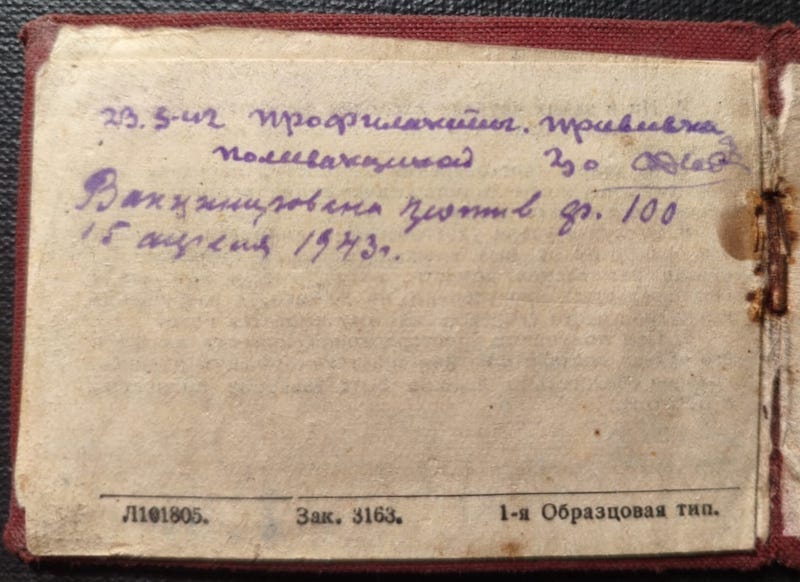 профилактич. прививка
поливакциной
Вакцинирована против ф. 100
15 апреля 1943г.
Л101805. Зак. 3163. 1-я Образцовая тип.